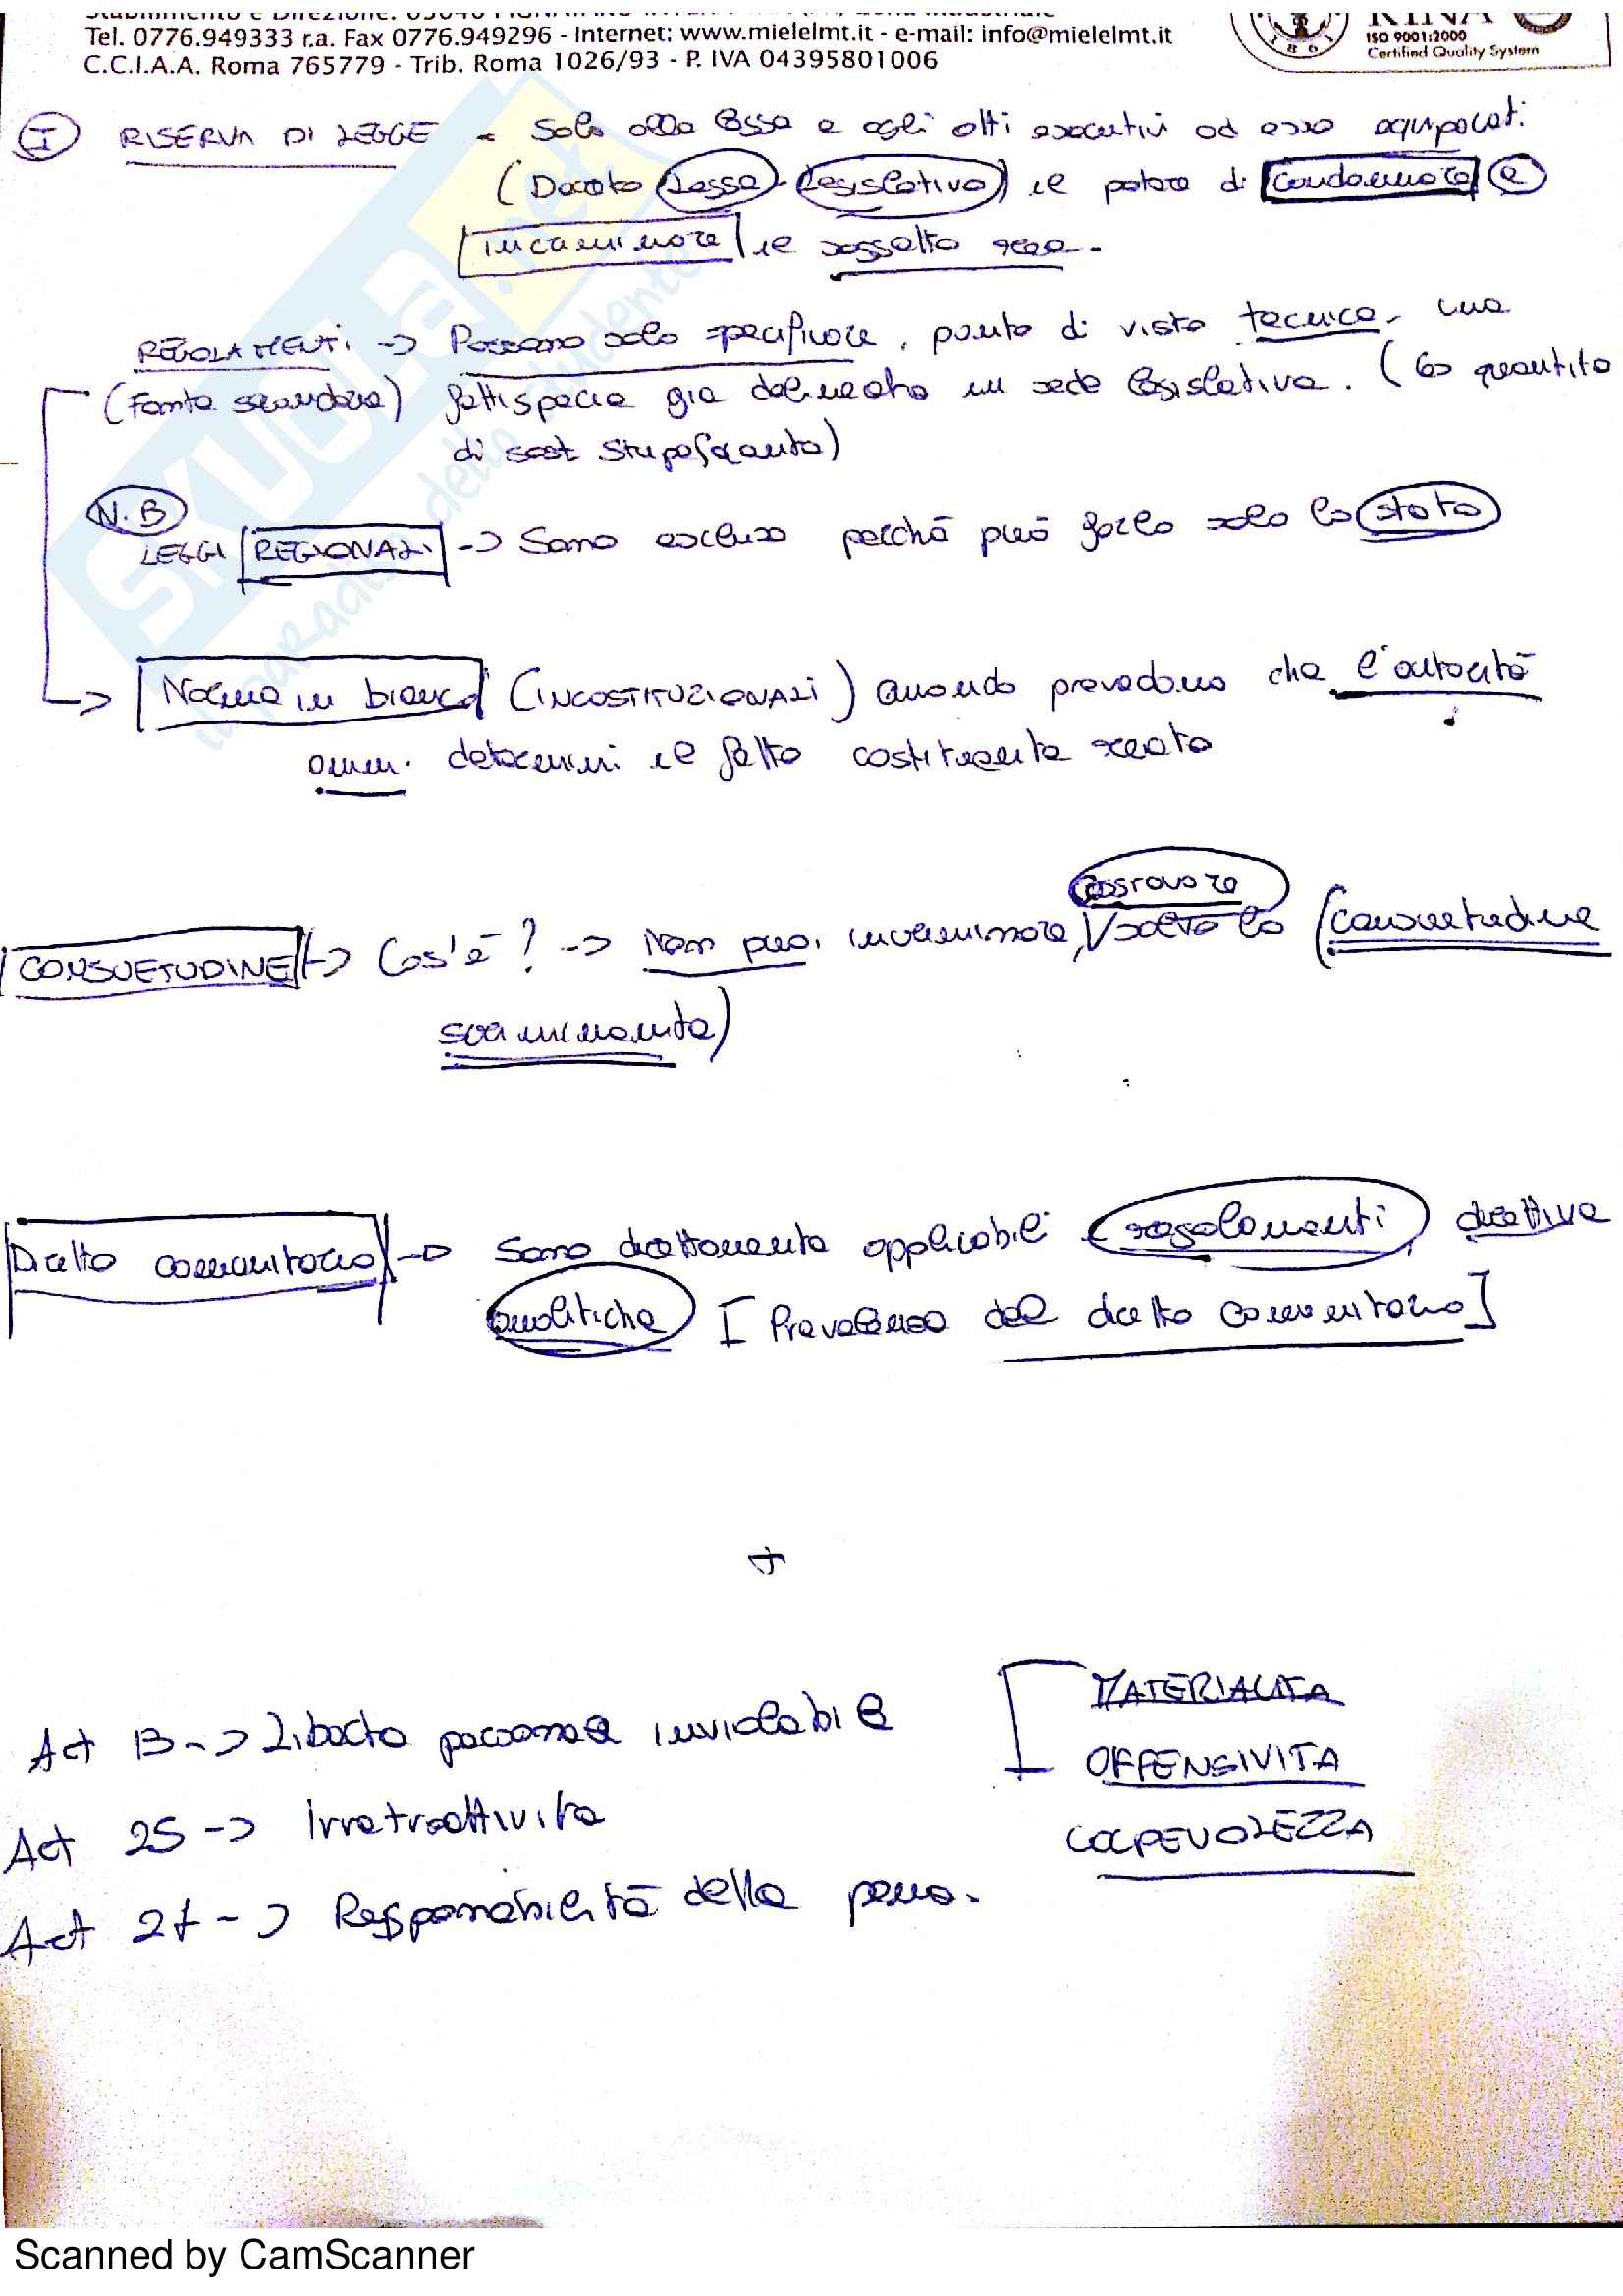 Tel. 0776.949333 r.a. Fax 0776.949296 - Internet: www.mielelmt.it - e-mail: info@mielelmt.it
C.C.I.A.A. Roma 765779 - Trib. Roma 1026/93 - P. IVA 04395801006
RINA
ISO 9001:2000
Certified Quality System
1861
SKUOLA.net
il paradiso dello studente
I RISERVA DI LEGGE = Solo alla legge e agli atti esecutivi ad essa equiparati
(Decreto Legge - Legislativo) il potere di condannare e
incriminare il soggetto reo.
REGOLAMENTI -> Possono solo specificare, punto di vista tecnico, una
(Fonte secondaria) fattispecie già delineata in sede legislativa. (es quantità
di sost stupefacente)
N.B
LEGGI REGIONALI -> Sono escluse perché può farlo solo lo stato
-> Norme in bianco (INCOSTITUZIONALI) quando prevedono che l'autorità
amm. determini il fatto costituente reato
aggravare
CONSUETUDINE -> Cos'è? -> Non può incriminare, V salvo la (consuetudine
scriminante)
Diritto comunitario -> Sono direttamente applicabili i regolamenti, direttive
analitiche [Prevalenza del diritto comunitario]
+
Art 13 -> Libertà personale inviolabile
Art 25 -> Irretroattività
Art 27 -> Responsabilità della pena.
MATERIALITA
OFFENSIVITA
COLPEVOLEZZA
Scanned by CamScanner